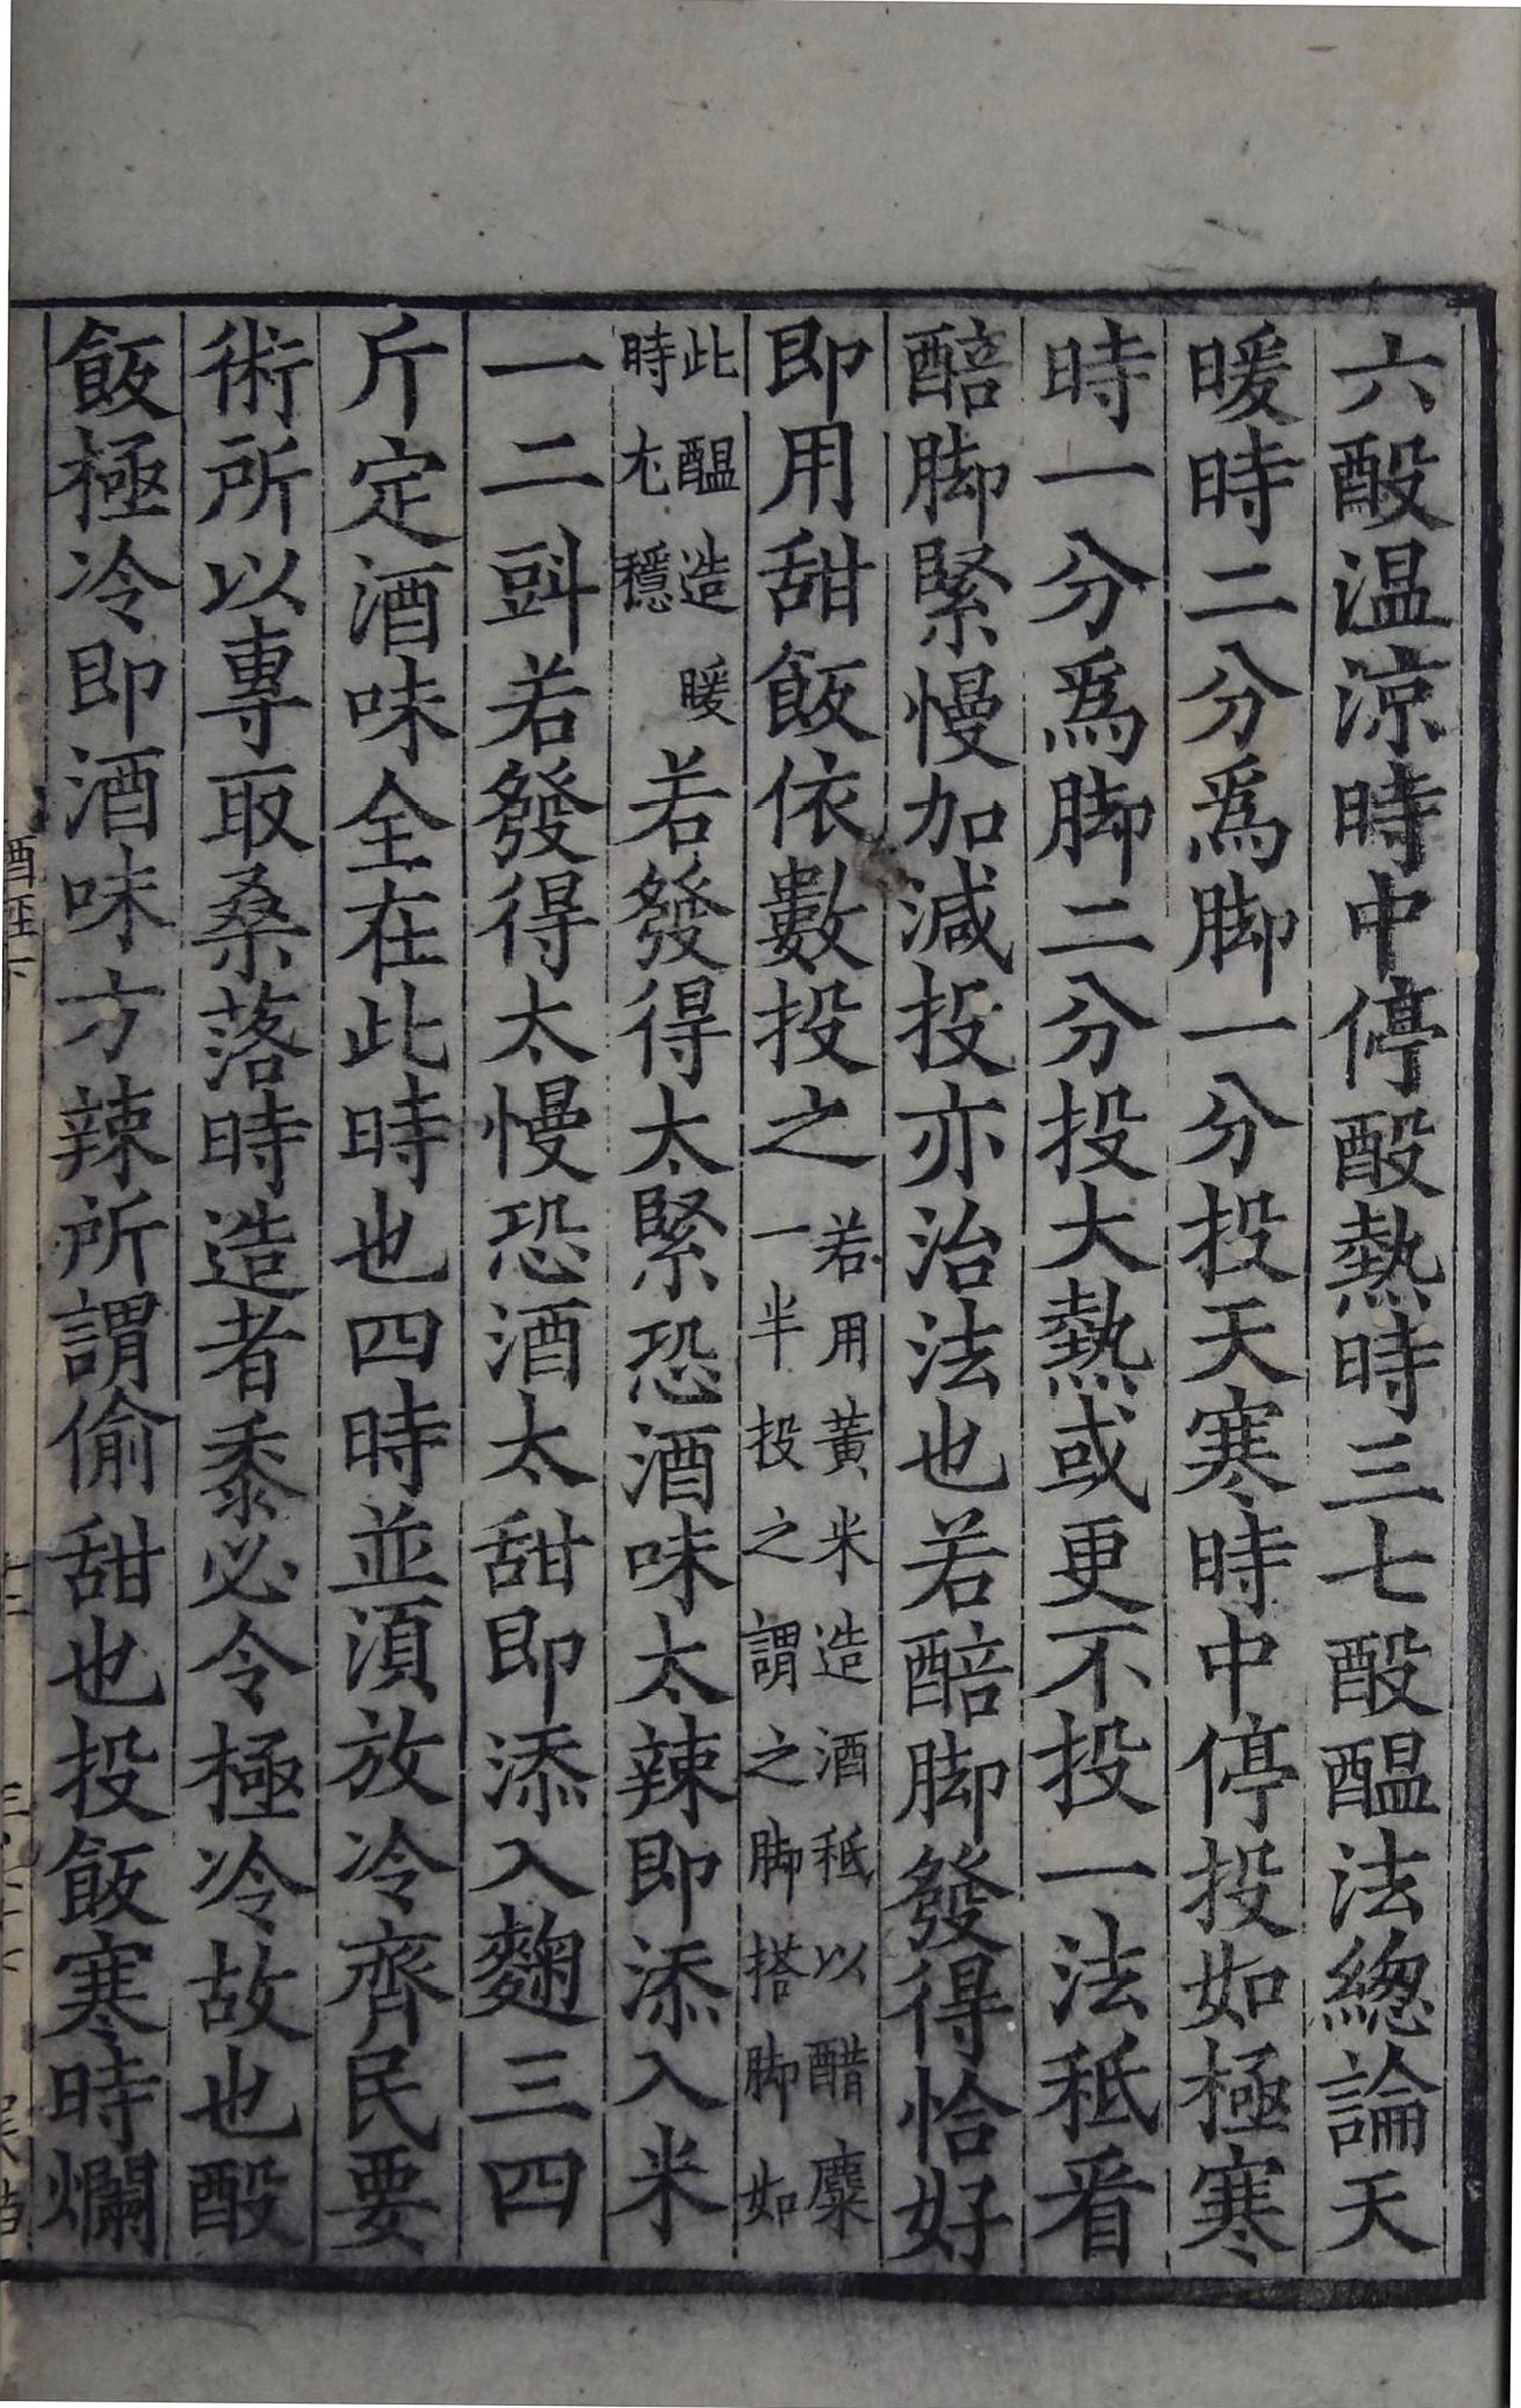 六酘温涼時中停酘熱時三七酘醖法緫論天
暖時二分爲脚一分投天寒時中停投如極寒
時一分爲脚二分投大熱或更不投一法秪看
醅脚緊慢加減投亦治法也若醅脚發得恰好
即用甜飯依數投之若用黃米造酒秪以醋糜
一半投之謂之脚搭脚如
此醖造暖
時尤穩
若發得太緊恐酒味太辣即添入米
一二㪷若發得太慢恐酒太甜即添入麴三四
斤定酒味全在此時也四時並湏放冷齊民要
術所以專取桑落時造者黍必令極冷故也酘
飯極冷即酒味方辣所謂偷甜也投飯寒時爛